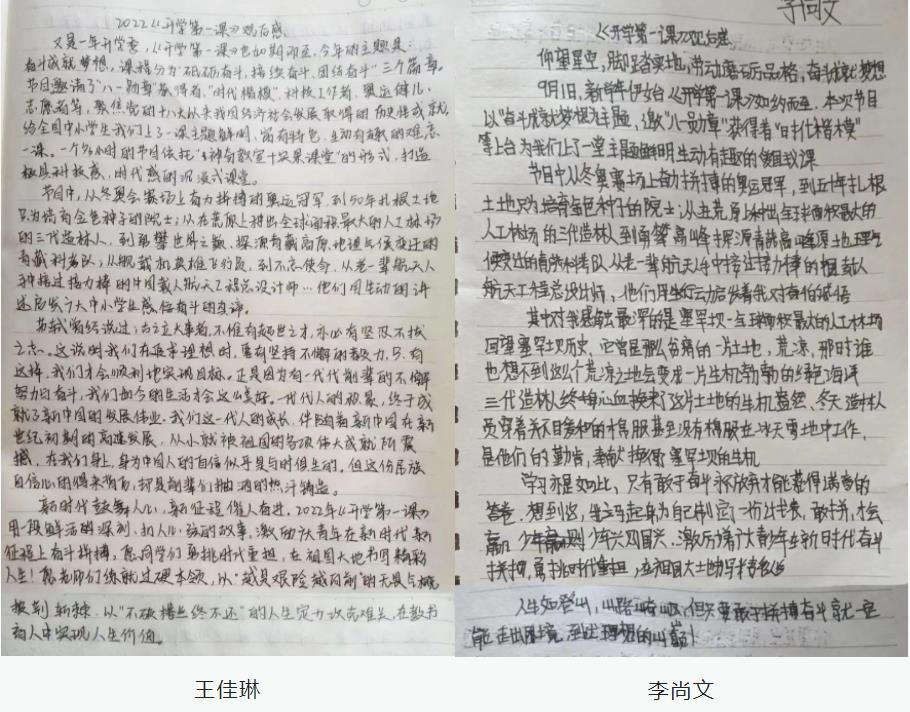 2022《开学第一课》观后感
又是一年开学季,《开学第一课》也如期而至,今年的主题是:
奋斗成就梦想,课程分为"砥砺奋斗,接续奋斗,团结奋斗"三个篇章。
节目邀请了"八一勋章"获得者、"时代楷模"、科技工作者、奥运健儿、
志愿者等,聚焦党的十八大以来我国经济社会发展取得的历史性成就,
给全国中小学生我们上了一课主题鲜明,富有特色,生动有趣的难忘
一课。一个多小时的节目依托"神奇教室+实景课堂"的形式,打造
极具科技感、时代感的沉浸式课堂。
节目中,从冬奥会赛场上奋力拼搏的奥运冠军,到50年扎根土地
只为培育金色种子的院士;从在荒原上种出全球面积最大的人工林场
的三代造林人,到勇攀世界之巅、探源青藏高原地理气候变迁的
青藏科考队,从舰载机英雄飞行员,到不忘使命,从老一辈航天人
手中接过接力棒的中国载人航天工程总设计师…他们用生动的讲
述启发广大中小学生感悟奋斗的真谛。
苏轼曾经说过:古之立大事者,不惟有超世之才,亦必有坚忍不拔
之志。这说明我们在追求理想时,要有坚持不懈的毅力,只有
这样,我们才会顺利地实现目标。正是因为有一代代前辈的不懈
努力与奋斗,我们如今的生活才会这么美好。一代人的砥砺,终于成
就了新中国的发展伟业。我们这一代人的成长,伴随着新中国在新
世纪初期的高速发展,从小就被祖国的各项伟大成就所震
撼,在我们身上,身为中国人的自信似乎是与时俱生的。但这份民族
自信心的得来背后,却是前辈们抛洒的热汗铸造。
新时代鼓舞人心,新征程催人奋进。2022年《开学第一课》
用一段鲜活的深刻、扣人心弦的故事,激励广大青年在新时代新
征程上奋斗拼搏,愿同学们勇挑时代重担,在祖国大地书写精彩
人生!愿老师们练就过硬本领,以"越是艰险越向前"的无畏与
披荆斩棘,以"不破楼兰终不还"的人生定力攻克难关,在教书
育人中实现人生价值。
王佳琳
李尚文
《开学第一课》观后感
仰望星空,脚踏实地,劳动磨砺品格,奋斗成就梦想
9月1日,新学年伊始《开学第一课》如约而至,本次节目
以"奋斗成就梦想"为主题,邀"八一勋章"获得者"时代楷模"
等上台为我们上了一堂主题鲜明生动有趣的思政课
节目中从冬奥赛场上奋力拼搏的奥运冠军,到五十年扎根
土地只为培育金色种子的院士;从在荒原上种出全球面积最大的
人工林场的三代造林人到勇攀高峰探源青藏高原地理气
候变迁的青藏科考队从老一辈航天人手中接过接力棒的中国载人
航天工程总设计师,他们用生动启发着我对奋斗的感悟
其中对我感触最深的是塞罕坝—全球面积最大的人工林场
回望塞罕坝历史,它曾是那么贫瘠的一片土地,荒凉,那时谁
也想不到这个荒凉之地会变成一片生机勃勃的绿色海洋
三代造林人终用心血换来了这片土地的生机盎然、冬天造林人
员穿着并不暖和的棉服甚至没有棉服在冰天雪地中工作,
是他们的勤恳,奉献换得塞罕坝的生机
学习亦是如此,只有敢于奋斗永不放弃才能获得满意的
答卷,想到这,我立马起身为自己制定了一份计划表,敢拼,才会
赢,少年强则少年兴则国兴、激励广大青少年在新时代奋斗
拼搏,勇挑时代重担,在祖国大地书写精彩人生
人生如登山,山路崎岖,但只要敢于拼搏奋斗就一定
能走出困境,到达理想的山巅!
李尚文